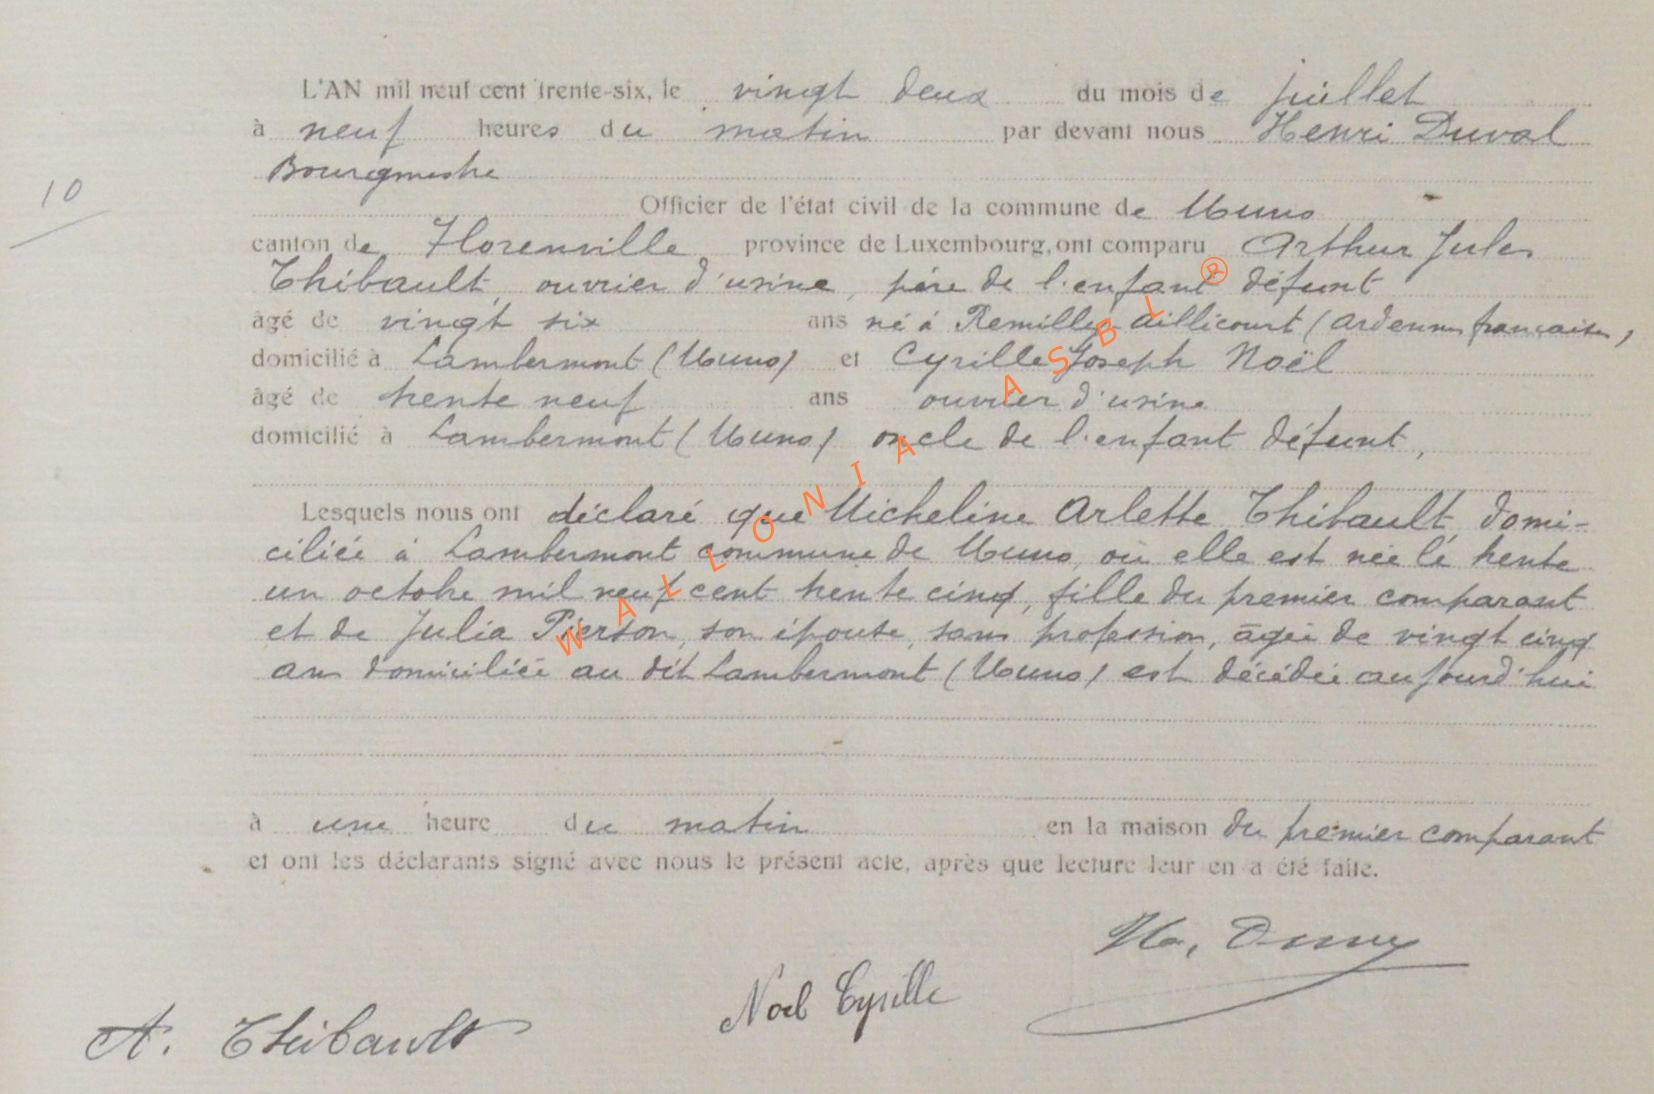 L'AN mil neuf cent trente-six, le vingt deux du mois de juillet
à neuf heures du matin par devant nous Henri Duval
Bourgmestre
10
Officier de l'état civil de la commune de Muno
canton de Florenville province de Luxembourg, ont comparu Arthur Jules
Thibault, ouvrier d'usine, père de l'enfant défunt
âgé de vingt six ans né à Remilly-Aillicourt (Ardennes françaises)
domicilié à Lambermont (Muno) et Cyrille Joseph Noël
âgé de trente neuf ans ouvrier d'usine
domicilié à Lambermont (Muno) oncle de l'enfant défunt,
Lesquels nous ont déclaré que Micheline Arlette Thibault, domi-
ciliée à Lambermont commune de Muno, où elle est née le trente
un octobre mil neuf cent trente cinq, fille du premier comparant
et de Julia Pierson, son épouse, sans profession, âgée de vingt cinq
ans domiciliée au dit Lambermont (Muno) est décédée aujourd'hui
à une heure du matin en la maison du premier comparant
et ont les déclarants signé avec nous le présent acte, après que lecture leur en a été faite.
Noël Cyrille
A. Thibault
WALLONIA ASBL ®